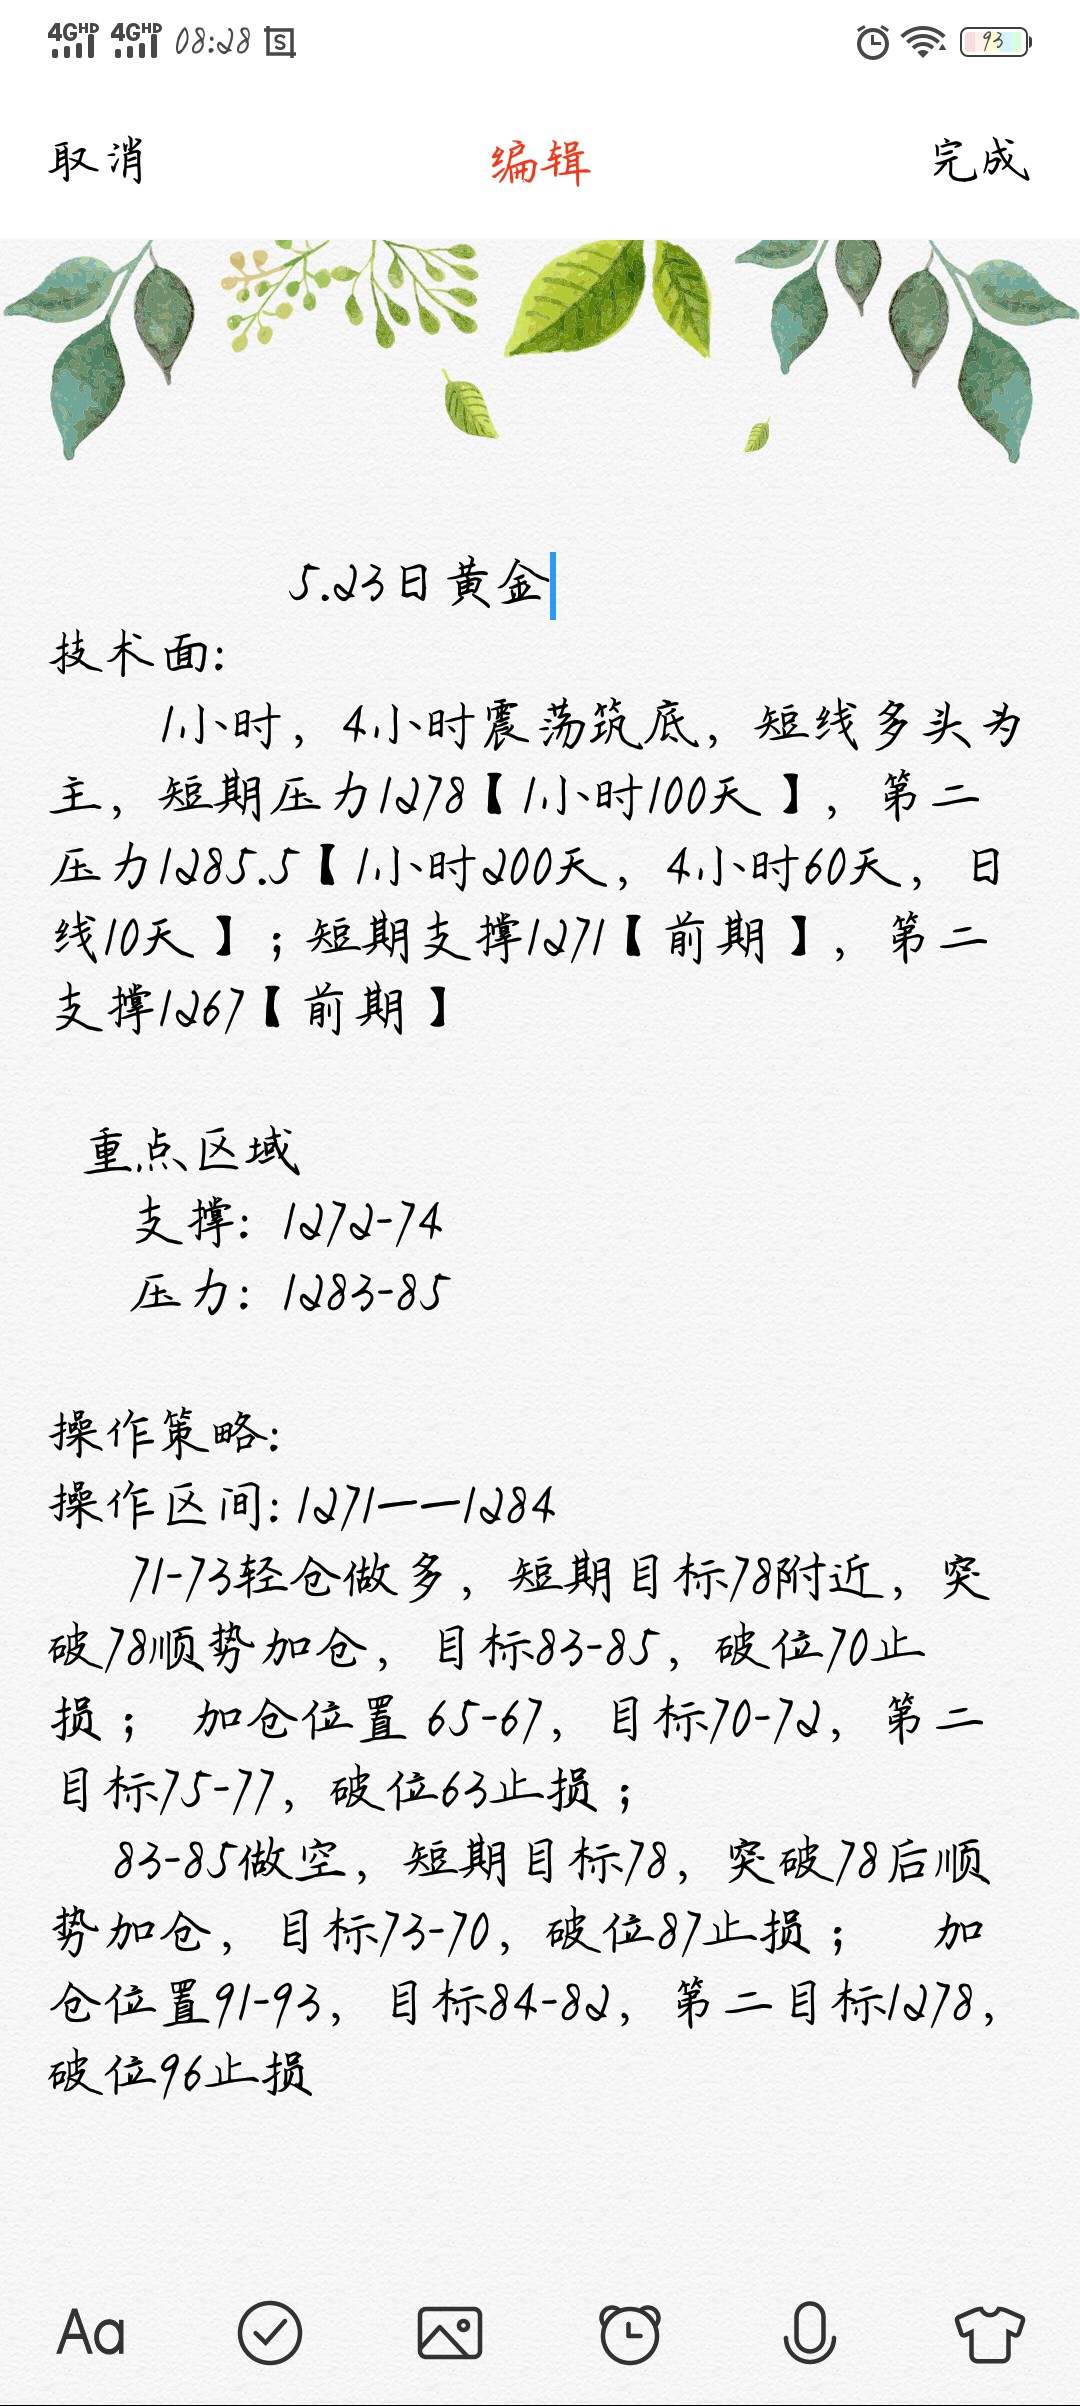 4GHD 4GHD 08:28 93
取消 编辑 完成
5.23日黄金
技术面:
1小时，4小时震荡筑底，短线多头为
主，短期压力1278【1小时100天】，第二
压力1285.5【1小时200天，4小时60天，日
线10天】；短期支撑1271【前期】，第二
支撑1267【前期】
重点区域
支撑：1272-74
压力：1283-85
操作策略:
操作区间:1271——1284
71-73轻仓做多，短期目标78附近，突
破78顺势加仓，目标83-85，破位70止
损； 加仓位置 65-67，目标70-72，第二
目标75-77，破位63止损；
83-85做空，短期目标78，突破78后顺
势加仓，目标73-70，破位87止损； 加
仓位置91-93，目标84-82，第二目标1278，
破位96止损
Aa